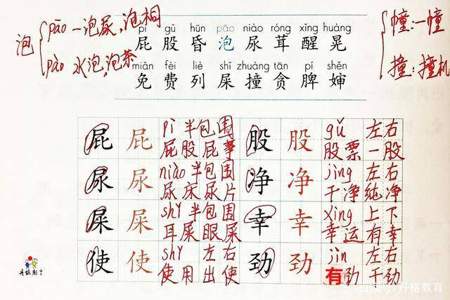 泡 pāo 一泡尿,泡桐
pào 水泡,泡茶
pì gǔ hūn pāo niào róng xǐng huáng
屁 股 昏 泡 尿 茸 醒 晃
miǎn fèi liè shǐ zhuàng tān pí shěn
免 费 列 屎 撞 贪 脾 婶
幢:一幢
撞:撞机
屁 屁 pì 半包围
屁股 屁事
股 股 gǔ 左右
股票 一股
尿 尿 niào 半包围
尿床 尿片
净 净 jìng 左右
干净 纯净
屎 屎 shǐ 半包围
耳屎 眼屎
幸 幸 xìng 上下
幸运 有幸
使 使 shǐ 左右
使用 出使
劲 劲 jìn 左右
有劲 干劲
丹格教育